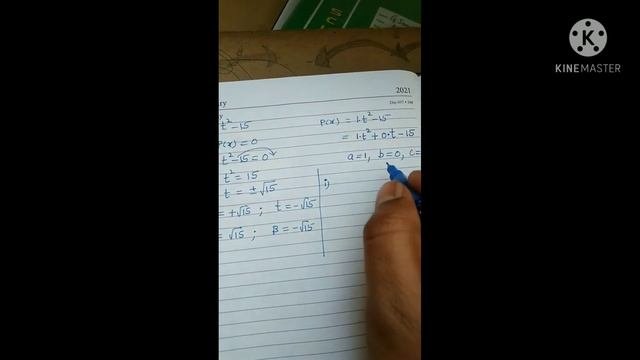 KINEMASTER
2021
t²-15
P(x) = 0
t²-15=0
t² = 15
t = ±√15
= +√15 ; t = -√15
= √15 ; β = -√15
P(x) = 1·t²-15
= 1·t² + 0·t - 15
a=1, b=0, c=
i)